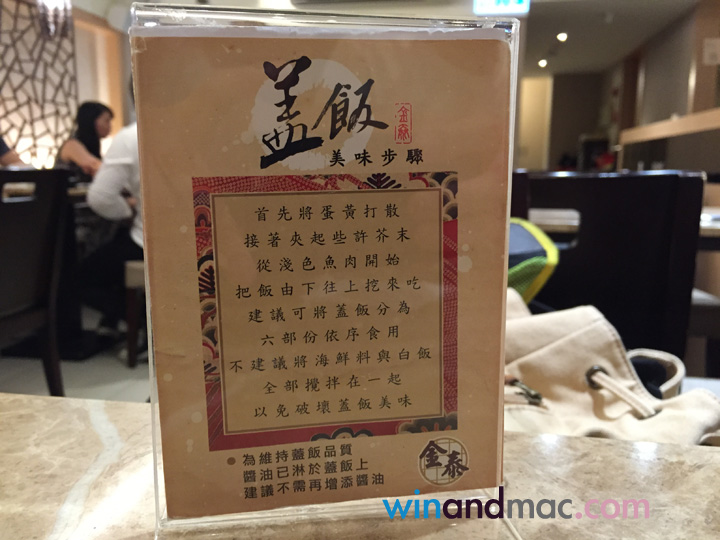 盖飯
金泰
美味步驟
首先將蛋黃打散
接著夾起些許芥末
從淺色魚肉開始
把飯由下往上挖來吃
建議可將蓋飯分為
六部份依序食用
不建議將海鮮料與白飯
全部攪拌在一起
以免破壞蓋飯美味
為維持蓋飯品質
醬油已淋於蓋飯上
建議不需再增添醬油
金泰
winandmac.com